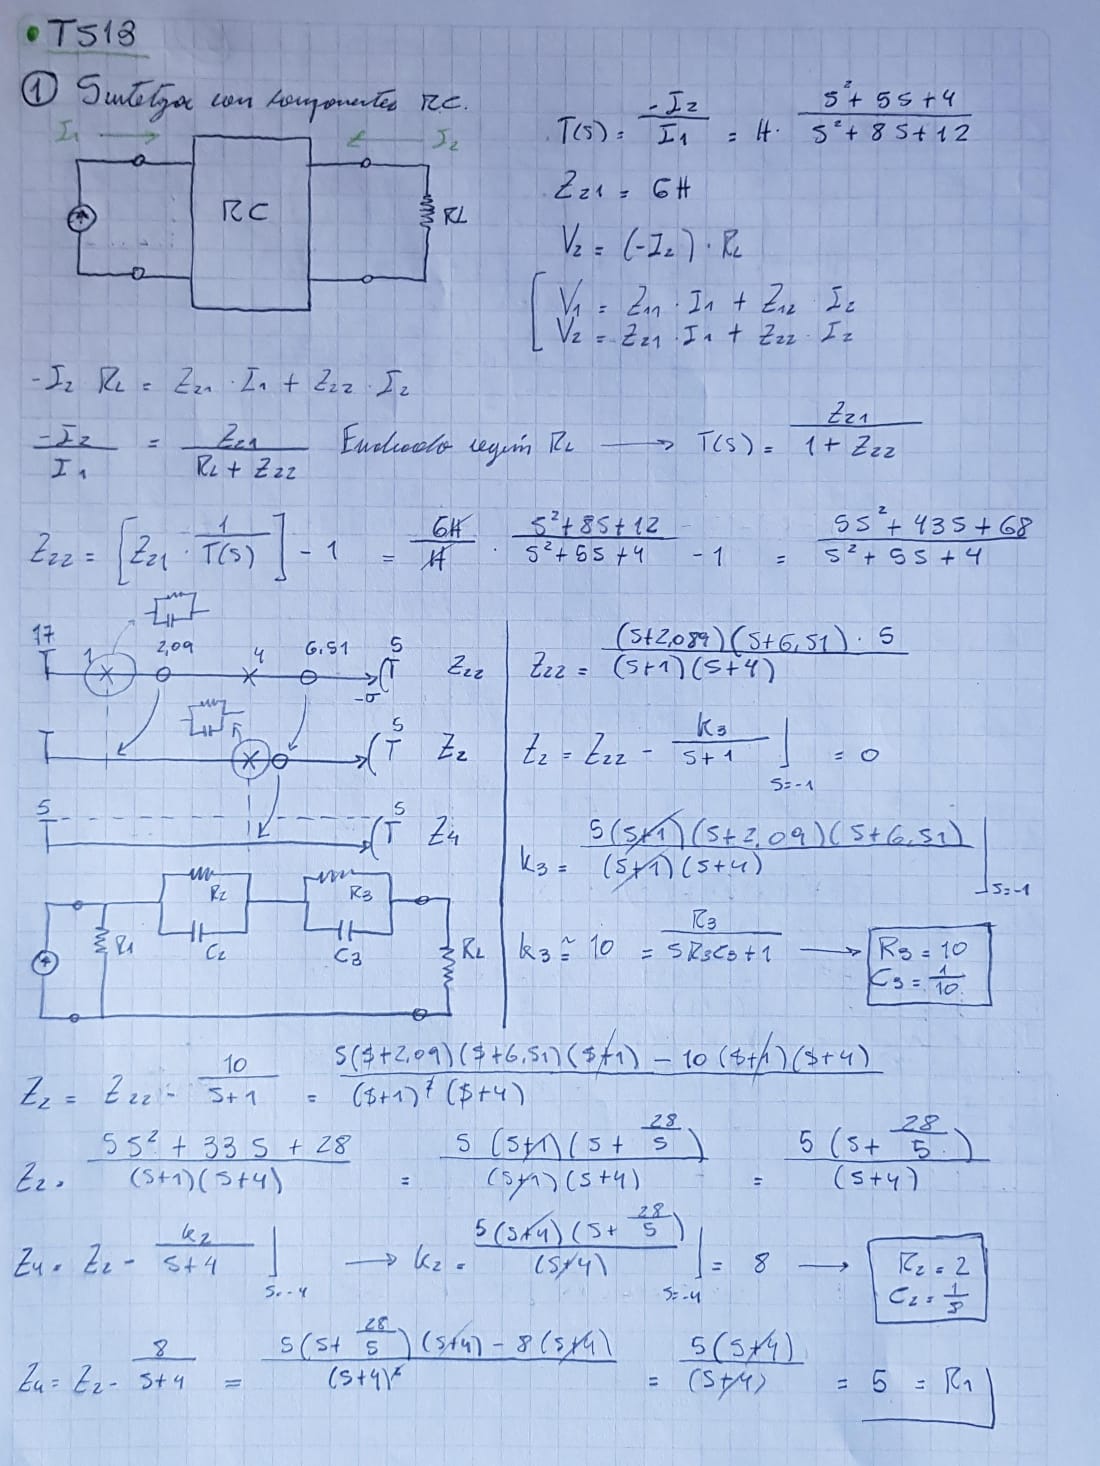 • TS13
① Sintetizar con componentes RC.
I₁ → ← I₂
RC RL
T(s) = -I₂ / I₁ = H · (s² + 5s + 4) / (s² + 8s + 12)
Z₂₁ = 6H
V₂ = (-I₂) · RL
V₁ = Z₁₁ · I₁ + Z₁₂ · I₂
V₂ = Z₂₁ · I₁ + Z₂₂ · I₂
-I₂ RL = Z₂₁ · I₁ + Z₂₂ · I₂
-I₂ / I₁ = Z₂₁ / (RL + Z₂₂) según RL → T(s) = Z₂₁ / (1 + Z₂₂)
Z₂₂ = [Z₂₁ · 1 / T(s)] - 1 = 6H / H · (s² + 8s + 12) / (s² + 5s + 4) - 1 = (5s² + 43s + 68) / (s² + 5s + 4)
17 1 2,09 4 6,51 5 -σ Z₂₂
Z₂₂ = (s+2,089)(s+6,51) · 5 / (s+1)(s+4)
5 Z₂
Z₂ = Z₂₂ - k₃ / (s+1) ] s=-1 = 0
5 5 Z₄
k₃ = 5(s+1)(s+2,09)(s+6,51) / (s+1)(s+4) | s=-1
R₁ R₂ C₂ R₃ C₃ RL
k₃ ≅ 10 = R₃ / (SR₃C₃+1) → R₃ = 10
C₃ = 1/10
Z₂ = Z₂₂ - 10 / ($+1) = 5($+2,09)($+6,51)($+1) - 10($+1)($+4) / ($+1)²($+4)
Z₂ = (5s² + 33s + 28) / (s+1)(s+4) = 5(s+1)(s + 28/5) / (s+1)(s+4) = 5(s + 28/5) / (s+4)
Z₄ = Z₂ - k₂ / (s+4) ] s=-4 → k₂ = 5(s+4)(s + 28/5) / (s+4) | s=-4 = 8 → R₂ = 2
C₂ = 1/8
Z₄ = Z₂ - 8 / (s+4) = 5(s + 28/5)(s+4) - 8(s+4) / (s+4)² = 5(s+4) / (s+4) = 5 = R₁